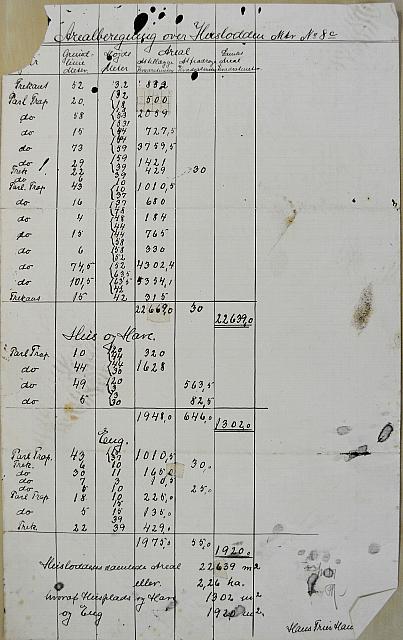 Arealberegning over Huslodden Mtr No 8c
Grundlinie Meter Høide Meter Areal
Trekant 52 32 832
Parl Trap 20 {32 18 500
do 58 {18 53 2059
do 15 {53 44 727,5
do 73 {44 59 3759,5
do 29 {59 39 1421
Trek 22 39 429
do 6 10 30
Parl. Trap 43 {10 37 1010,5
do 16 {37 48 680
do 4 {48 44 184
do 15 {44 58 765
do 6 {58 52 330
do 74,5 {52 63,5 4302,4
do 101,5 {63,5 42 5354,1
Trekant 15 42 315
22669,0 30
22639,0
Hus og Have.
Parl Trap 10 {20 44 320
do 44 {44 30 1628
do 49 {20 3 563,5
do 5 {3 30 82,5
1948,0 646,0
1302,0
Eng.
Parl Trap. 43 1010,5
Trek. 6 10 30,0
do 30 11 165,0
do 7 3 10,5
do 5 10 25,0
Parl Trap 18 {10 15 225,0
do 5 {15 39 135,0
Trek. 22 39 429,0
1975,0 55,0
1920,0
Huslodden samlede Areal 22639 m2
eller 2,26 ha.
hvoraf Husplads og Have 1302 m2
og Eng 1920 m2.